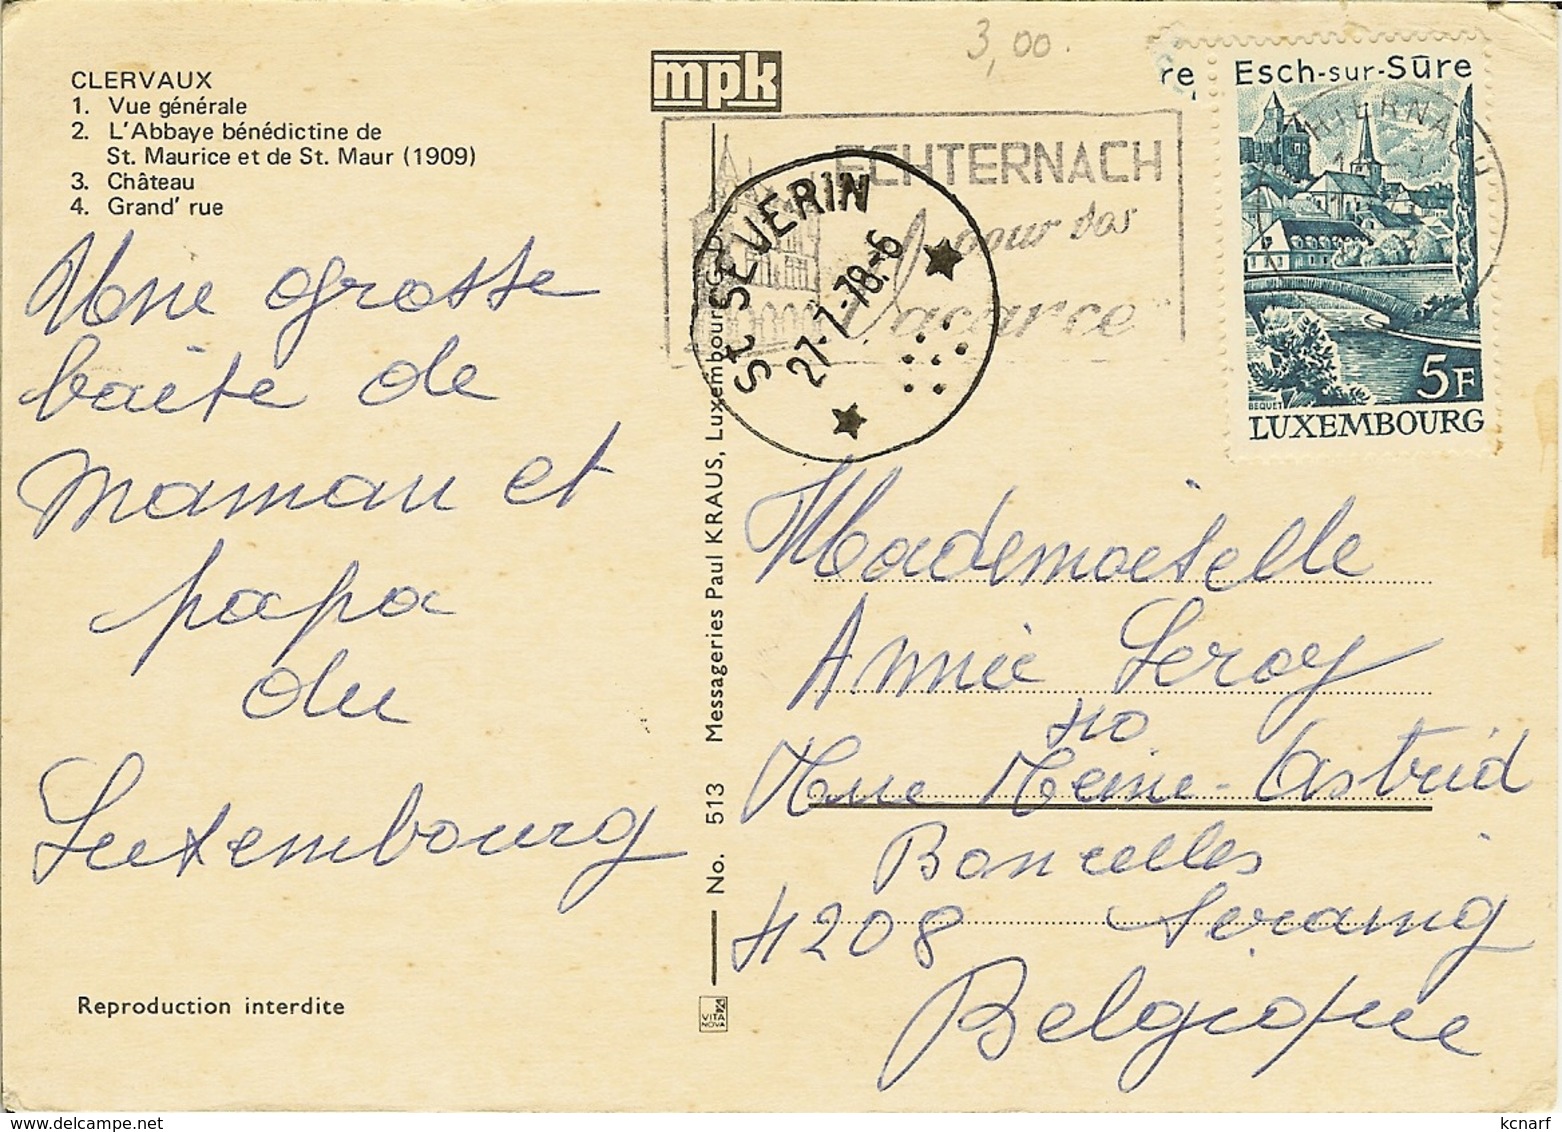 CLERVAUX
1. Vue générale
2. L'Abbaye bénédictine de
St. Maurice et de St. Maur (1909)
3. Château
4. Grand' rue
mpk
3,00.
re Esch-sur-Sûre
ECHTERNACH
pour vos
Vacances
St SEVERIN
27-7-78-6
5F
BEQUET
LUXEMBOURG
Une grosse
baise de
maman et
papa
du
Luxembourg
Mademoiselle
Annie Leroy
40
Rue Reine-Astrid
Boncelles
4208 Seraing
Belgique
No. 513 Messageries Paul KRAUS, Luxembourg
Reproduction interdite
VITA
NOVA
www.delcampe.net
kcnarf